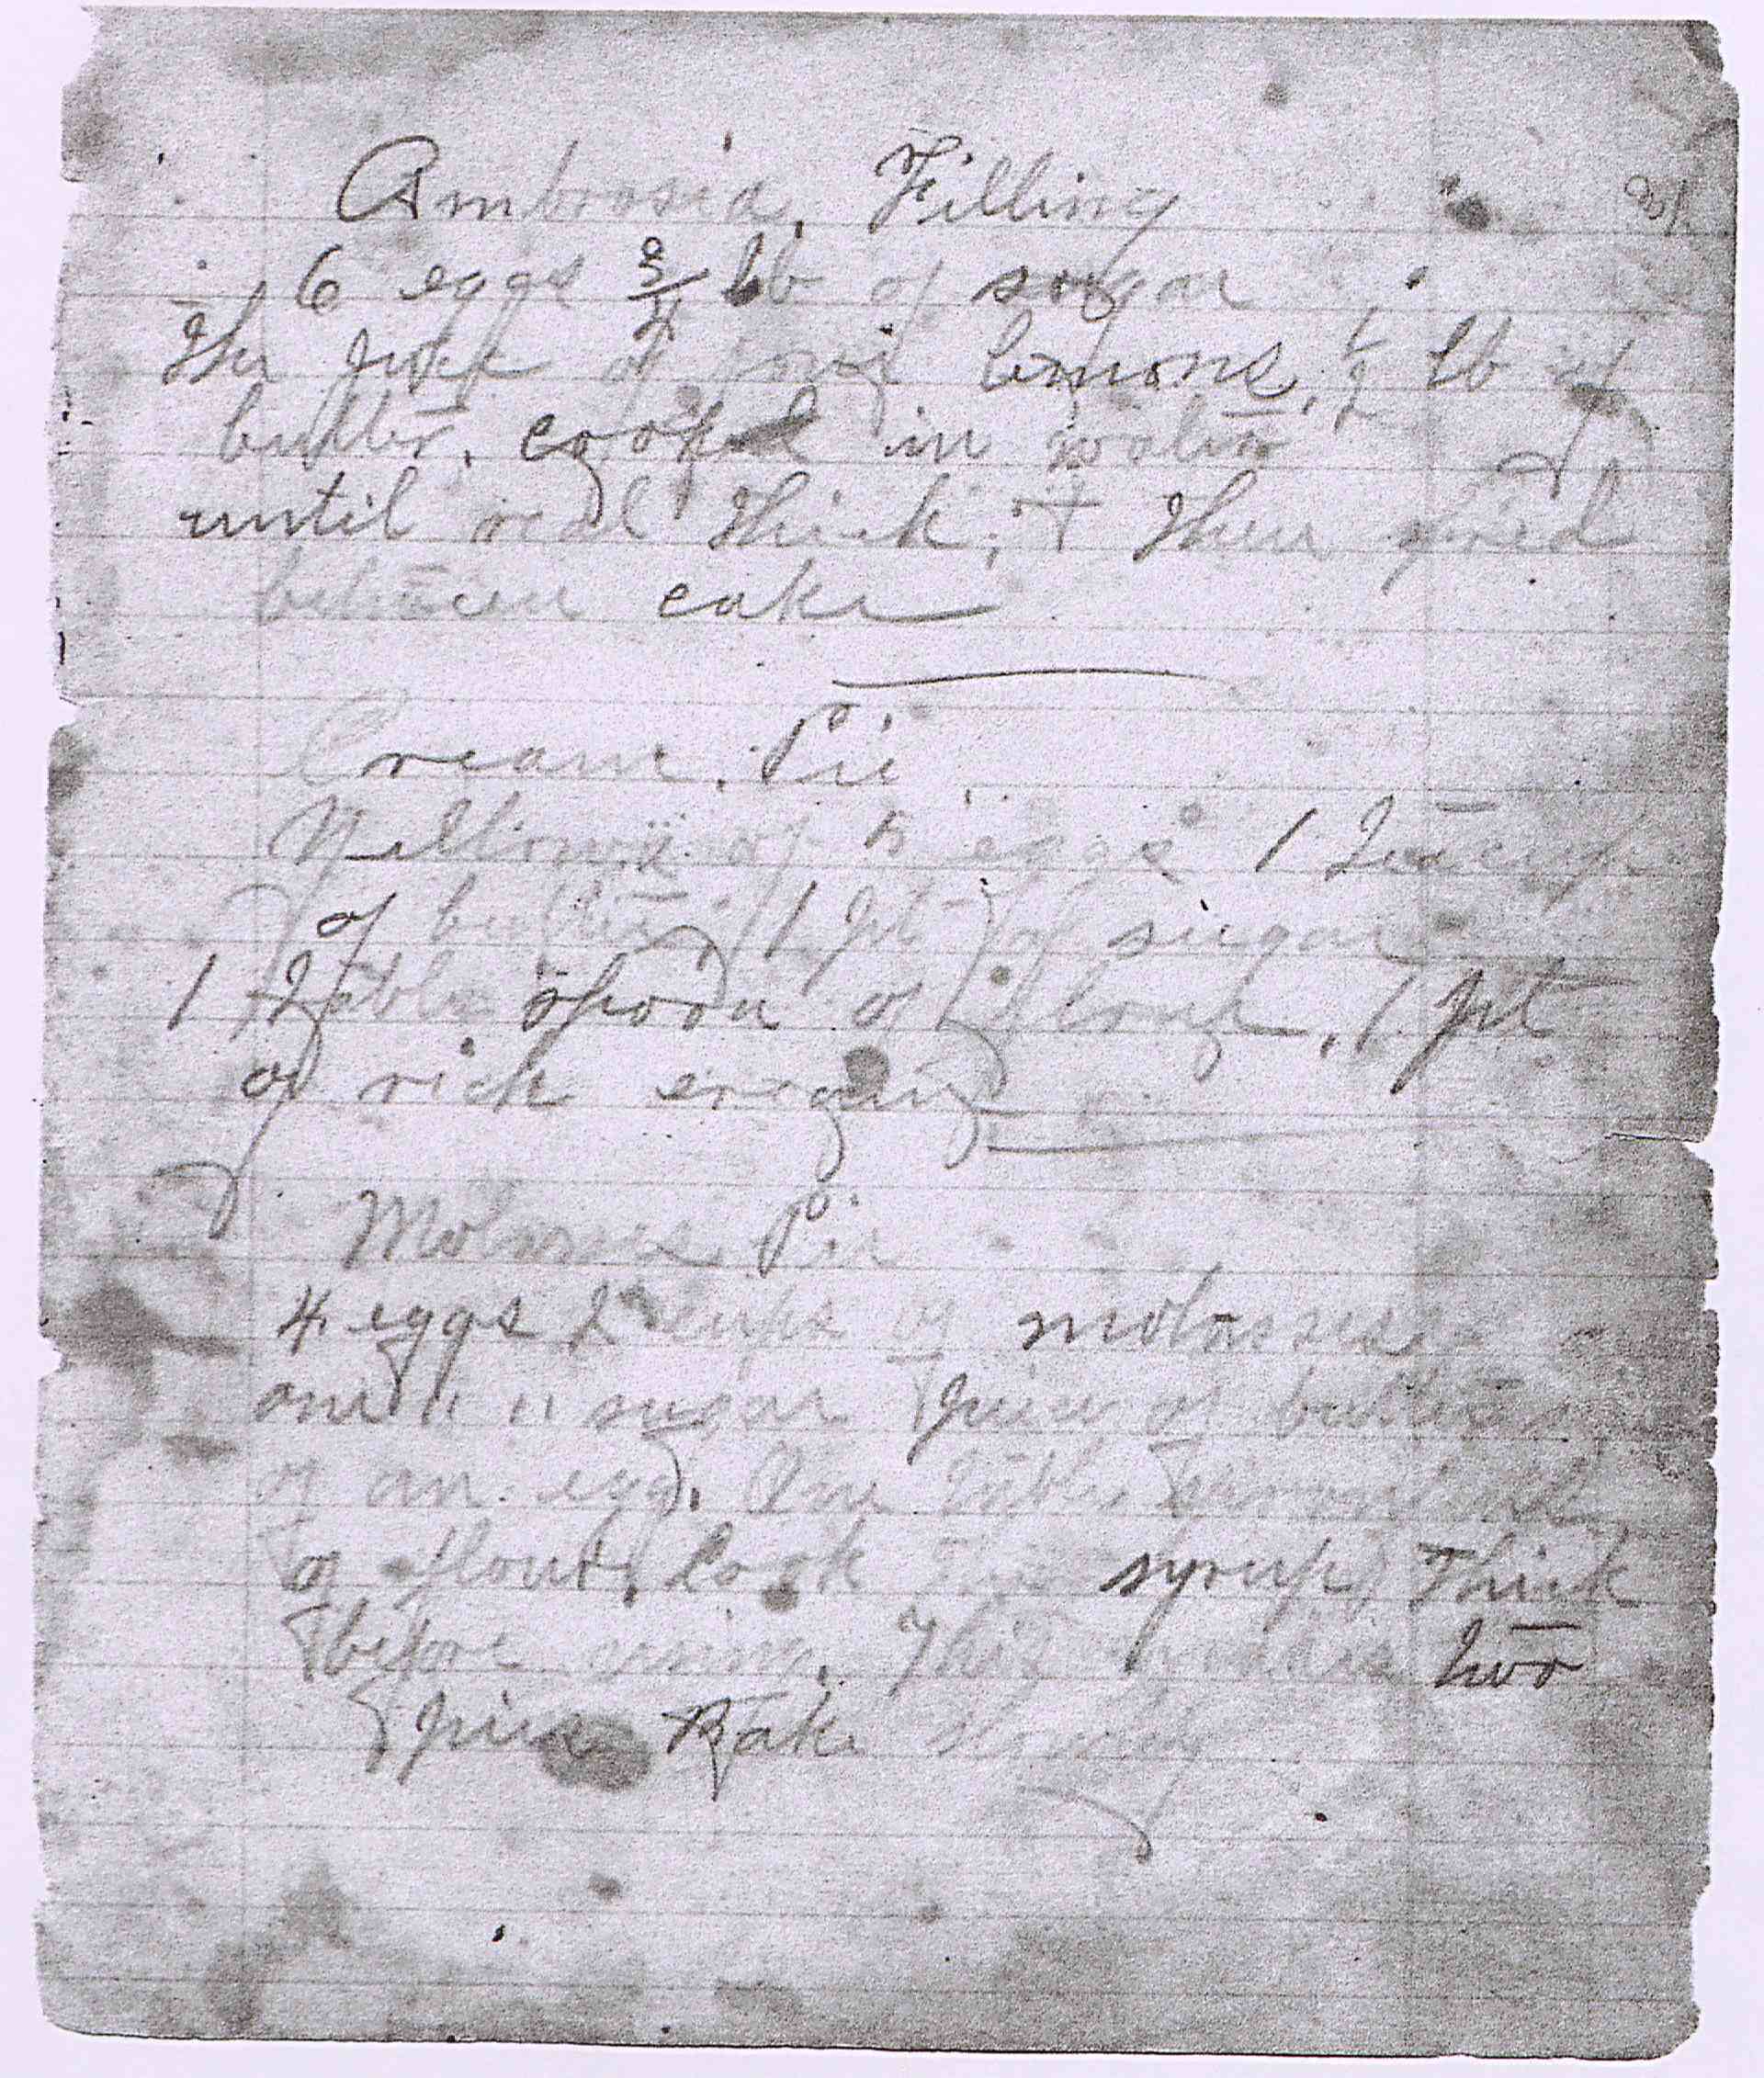 Ambrosia, Filling
6 eggs 3/4 lb of sugar
The of lemons, 1/2 lb of
butter, cooked in water
until real thick, + then
between cake
Cream Pie
of eggs 1 Teacup
of butter, 1 pt of sugar
1 Table spoon of flour, 1 pt
of rich cream
Molasses Pie
4 eggs 2 cups of molasses
one " " sugar of butter
of an egg. One Table
of flour, Cook syrup Thick
before using. This makes two
pies Bake slowly